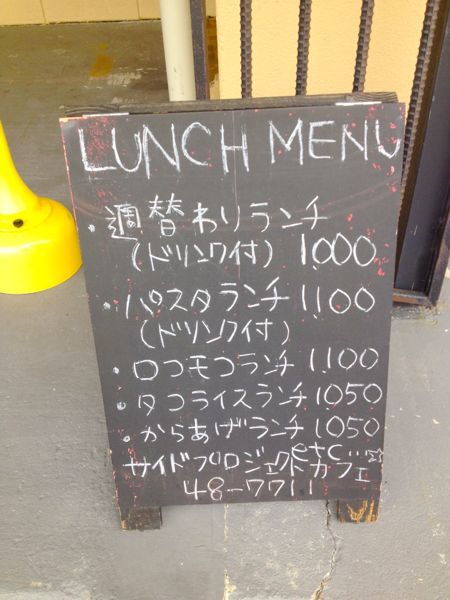 LUNCH MENU
・週替わりランチ
(ドリンク付) 1000
・パスタランチ 1,100
(ドリンク付)
・ロコモコランチ 1,100
・タコライスランチ 1050
・からあげランチ 1050
etc
サイドプロジェクトカフェ☆
48-7711